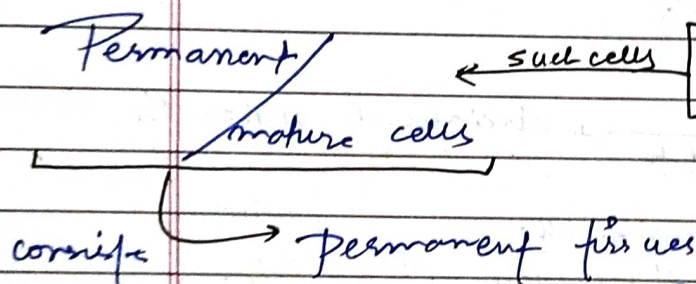 Permanent/ such cells
mature cells
consist Permanent tissues